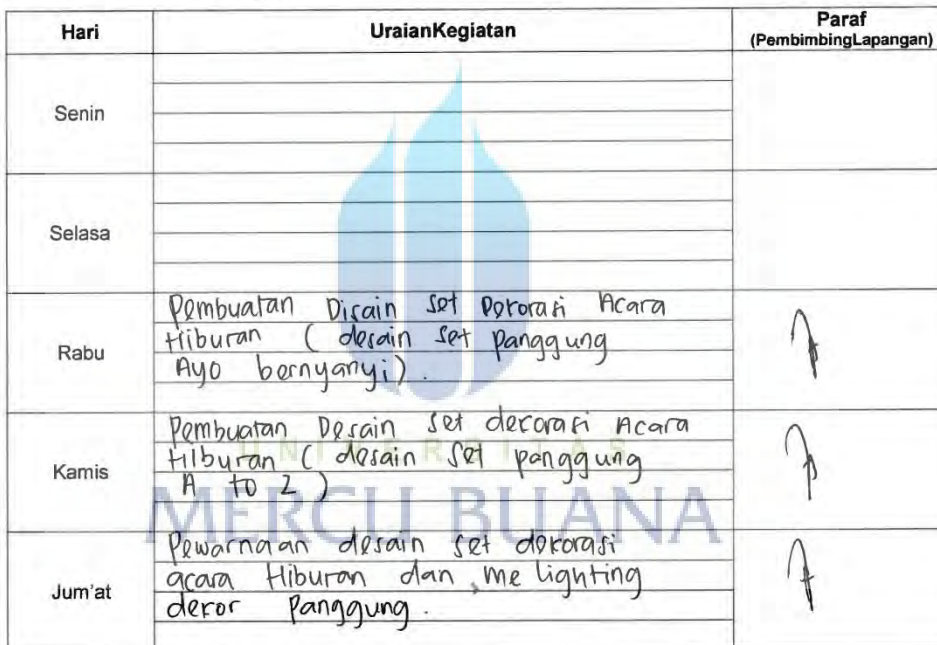 Hari UraianKegiatan Paraf
(PembimbingLapangan)
Senin
Selasa
Rabu
Pembuatan Disain set Dekorasi Acara
Hiburan ( desain set panggung
Ayo bernyanyi).
Kamis
Pembuatan Desain set dekorasi Acara
Hiburan ( desain set panggung
A to Z )
Jum'at
Pewarnaan desain set dekorasi
acara Hiburan dan me lighting
dekor panggung.
UNIVERSITAS
MERCU BUANA